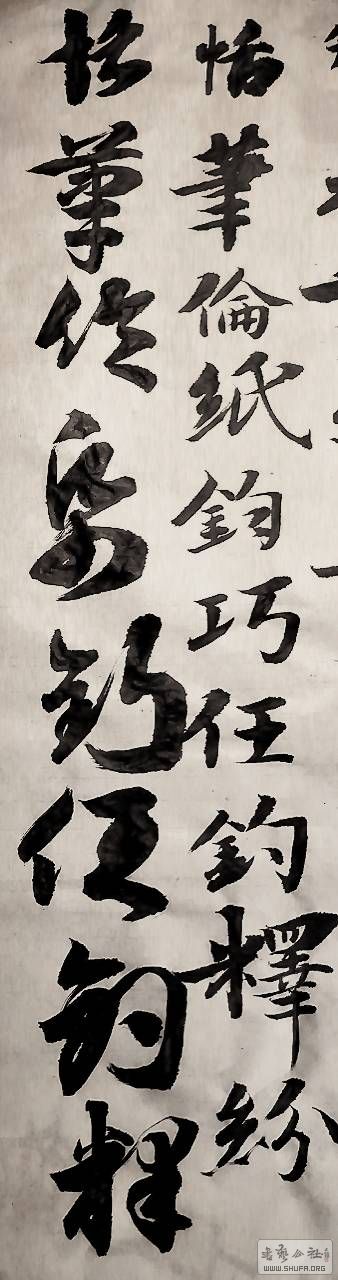 恬筆倫紙鈞巧任釣釋紛
恬筆倫帋鈞任釣釋
書藝公社
WWW.SHUFA.ORG